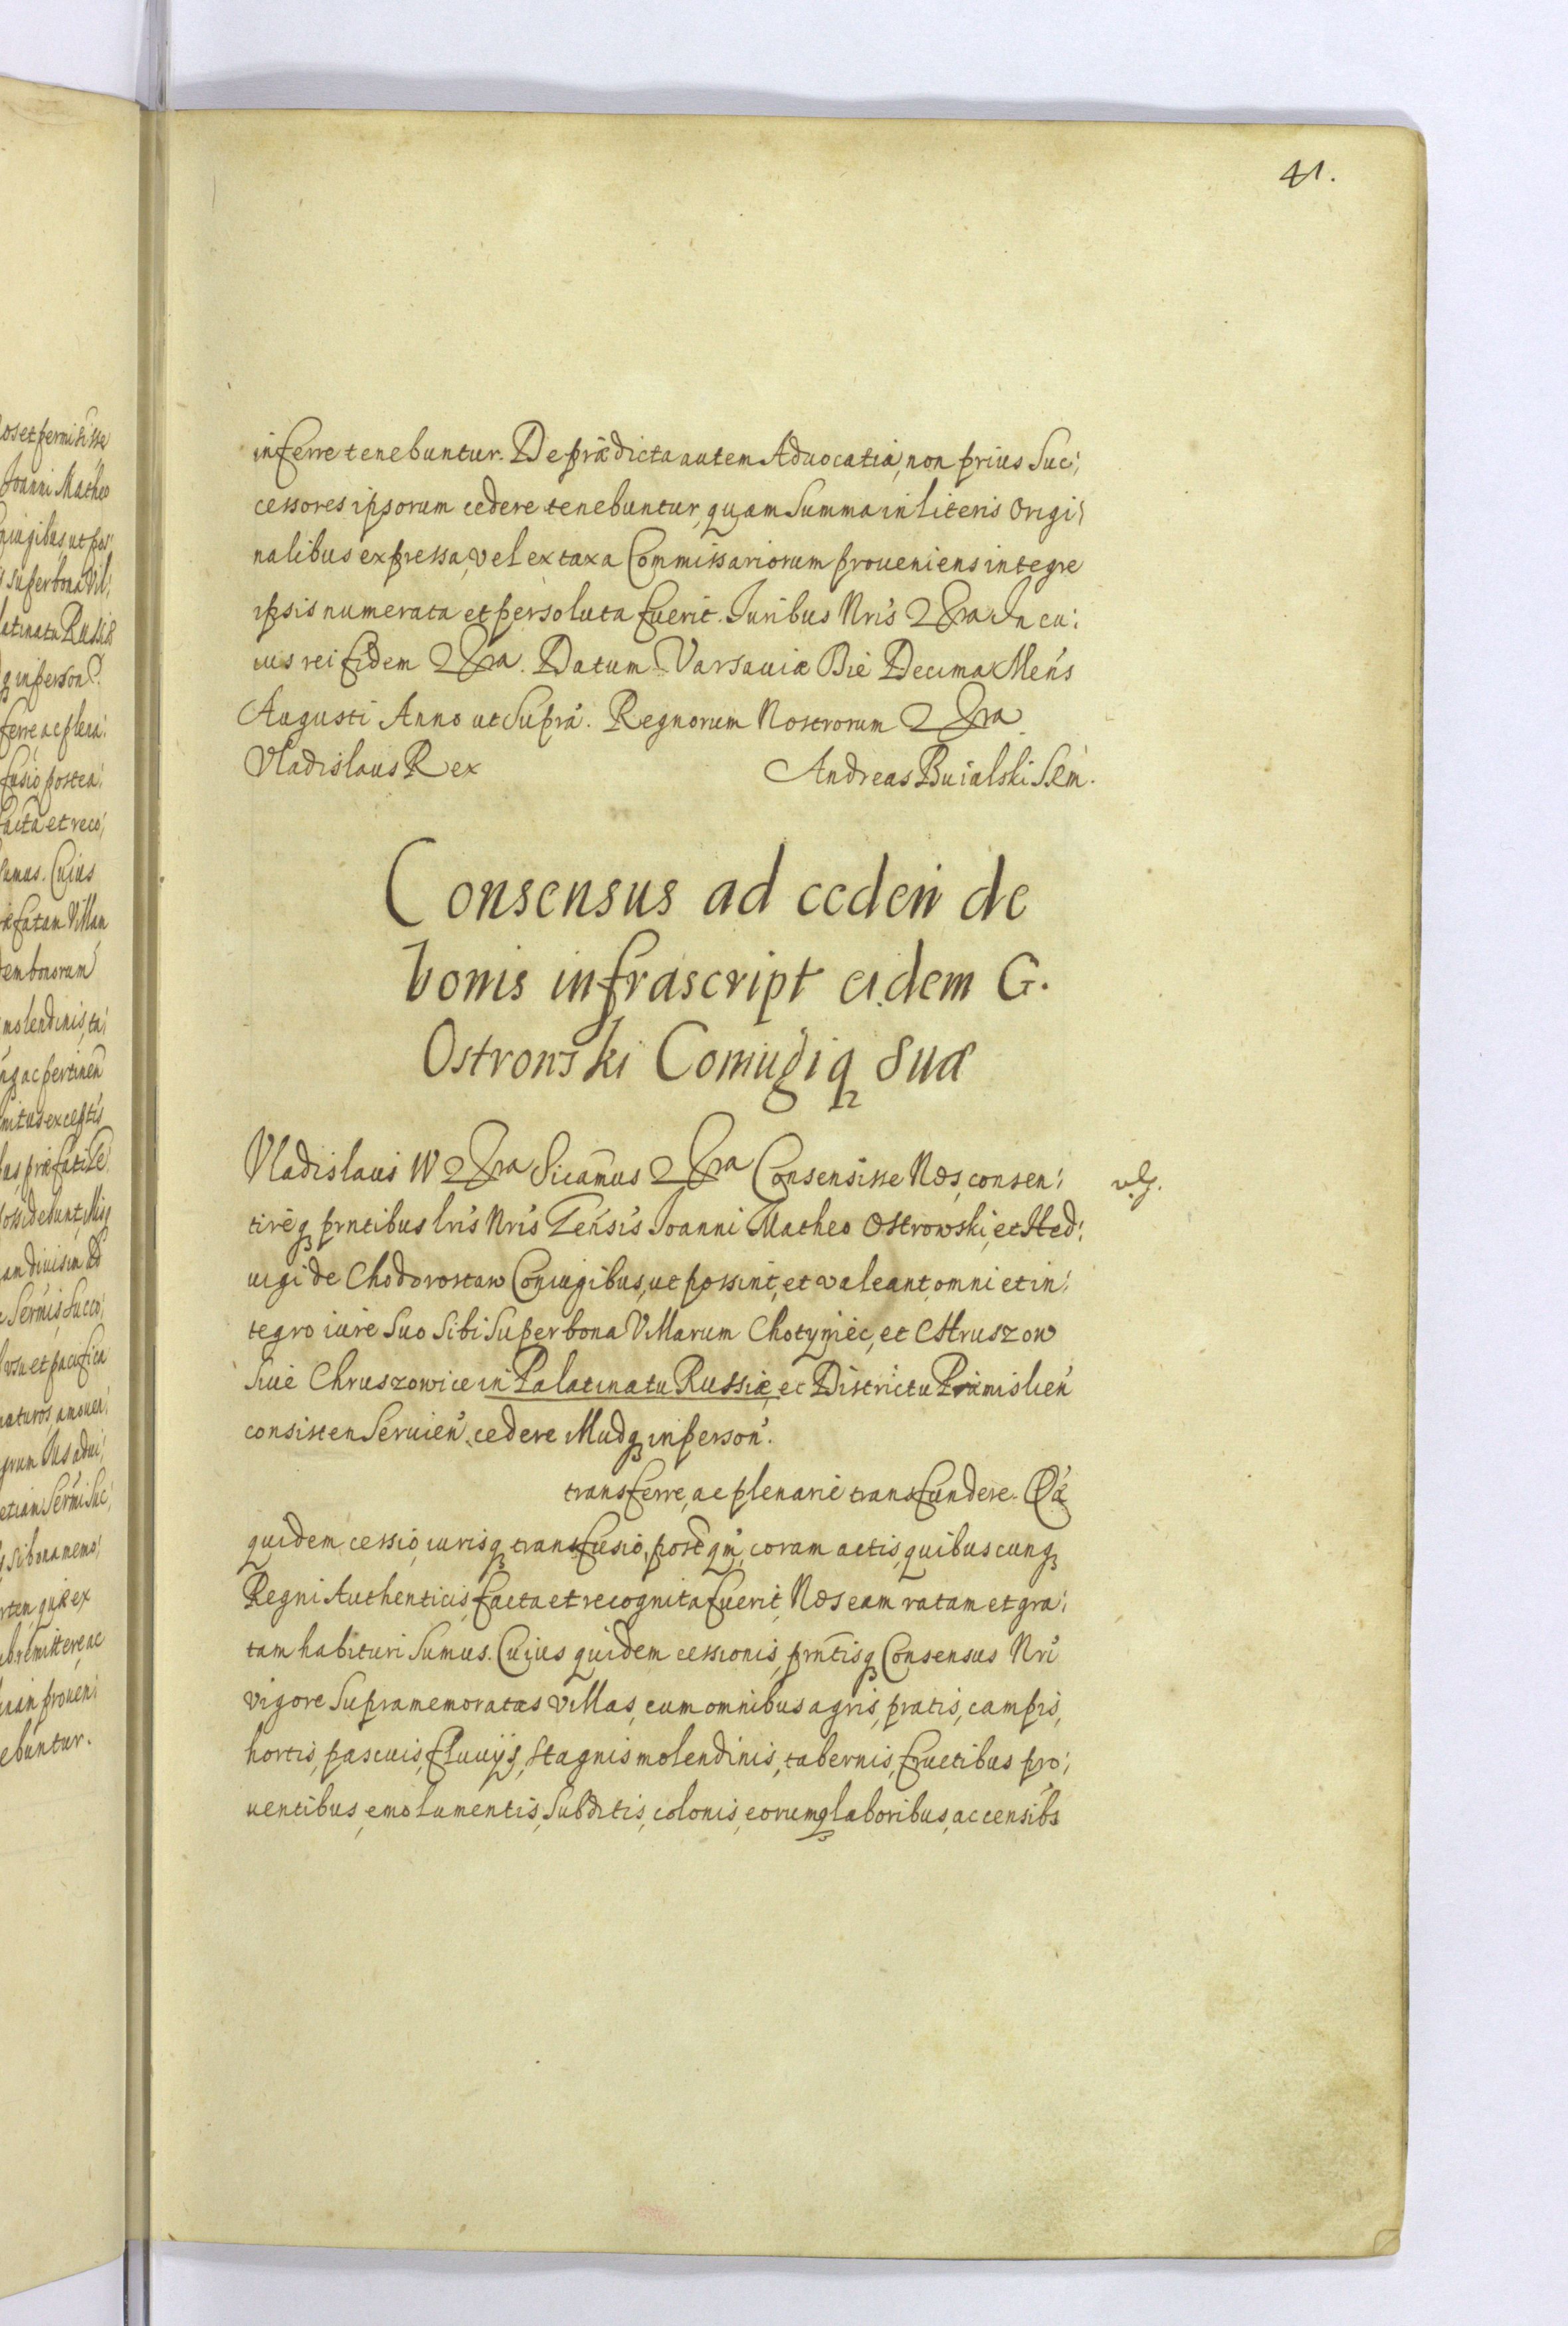 41.
inferre tenebuntur. De prædicta autem Aduocatia, non prius Suc:
cessores ipsorum cedere tenebuntur, quam Summa in literis Origi:
nalibus expressa, vel ex taxa Commissariorum proueniens integre
ipsis numerata et persoluta fuerit. Iuribus Nris In cu:
ius rei fidem. Datum Varsauiæ Die Decima Mens
Augusti Anno ut Supra. Regnorum Nostrorum
Vladislaus Rex
Andreas Buialski Sem.
Consensus ad ceden de
bonis infrascript eidem G.
Ostrowski Coniugiq Suæ
Vladislaus IV Sicamus Consensisse Nos, consen:
tireq prntibus lris Nris Gensis Joanni Matheo Ostrowski, et Hed:
uigi de Chodorostaw Coniugibus, ut possint, et valeant, omni et in:
tegro iure Suo Sibi Super bona Villarum Chotyniec, et Chruszow
Siue Chruszowice in Palatinatu Russiæ, et Districtu Præmislien
consisten Seruien, cedere Illudq in person.
transferre, ac plenarie transfundere. Qæ
quidem cessio, iurisq transfusio, postqm, coram actis, quibuscunq
Regni Authenticis, facta et recognita fuerit, Nos eam ratam et gra:
tam habituri Sumus. Cuius quidem cessionis, prntisq Consensus Nri
vigore Supramemoratas Villas, cum omnibus agris, pratis, campis,
hortis, pascuis, fluuijs, Stagnis molendinis, tabernis, fructibus pro:
uentibus, emolumentis, Subditis, colonis, eorumq laboribus, ac censibs